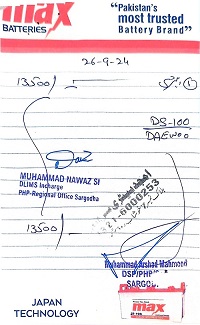 max
BATTERIES
"Pakistan's
most trusted
Battery Brand"
26-9-24
13500/
DS-100
DAEWOO
MUHAMMAD NAWAZ SI
DLIMS Incharge
PHP-Regional Office Sargodha
6000253
13500/
Muhammad Arshad Mahmood
DSP/PHP
SARGO
JAPAN
TECHNOLOGY
max